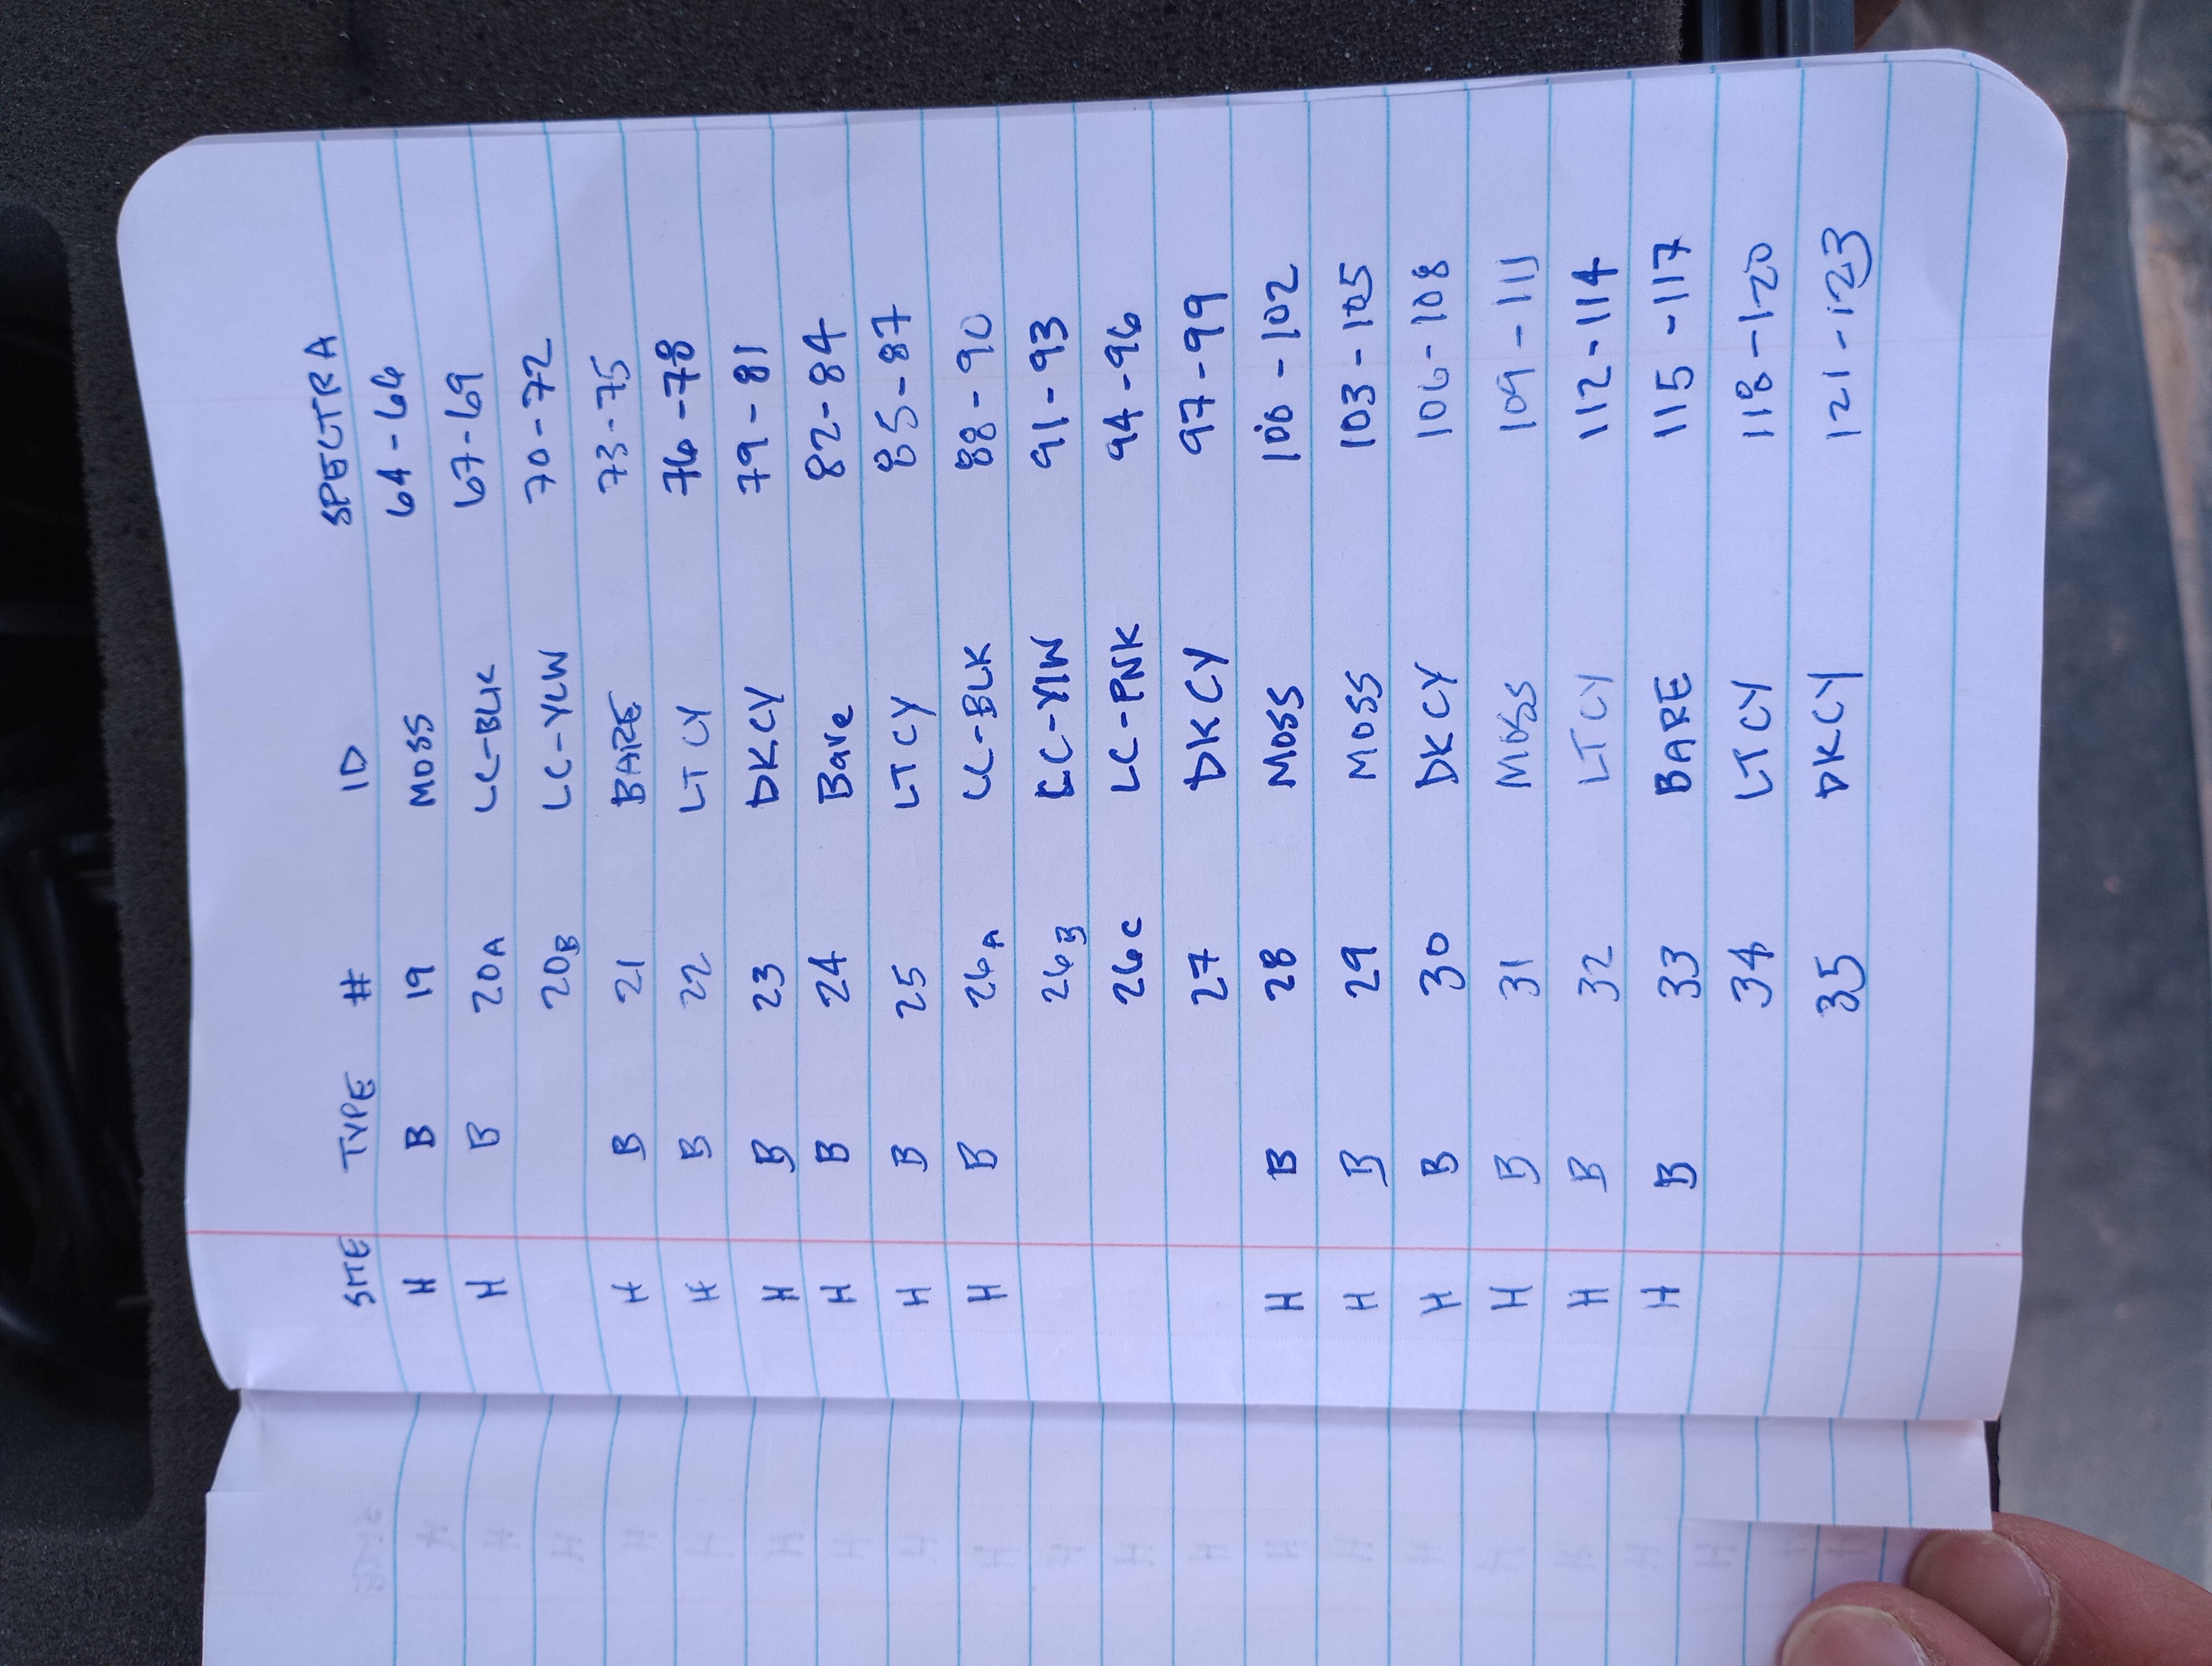 SITE TYPE # ID SPECTRA
H B 19 MOSS 64-66
H B 20A LC-BLK 67-69
20B LC-YLW 70-72
H B 21 BARE 73-75
H B 22 LTCY 76-78
H B 23 DKCY 79-81
H B 24 Bare 82-84
H B 25 LTCY 85-87
H B 26A LC-BLK 88-90
26B LC-YLW 91-93
26C LC-PNK 94-96
27 DKCY 97-99
H B 28 MOSS 100-102
H B 29 MOSS 103-105
H B 30 DKCY 106-108
H B 31 MOSS 109-111
H B 32 LTCY 112-114
H B 33 BARE 115-117
34 LTCY 118-120
35 DKCY 121-123